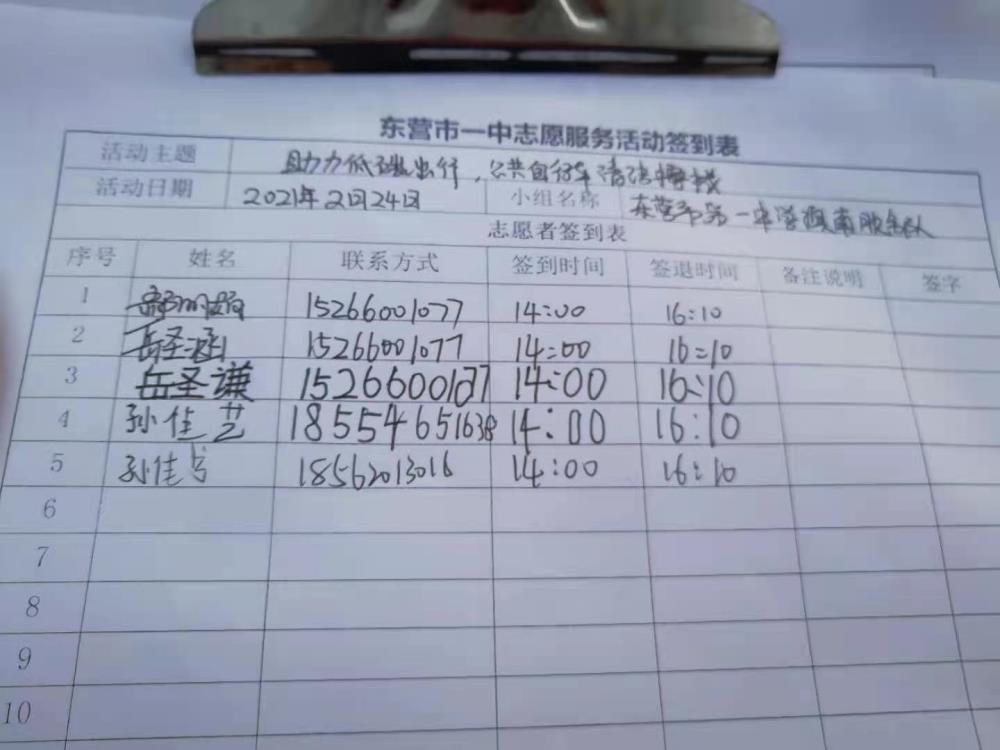 东营市一中志愿服务活动签到表
活动主题 助力低碳出行，公共自行车清洁
活动日期 2021年2月24日 小组名称 东营市第一中学
志愿者签到表
序号 姓名 联系方式 签到时间 签退时间 备注说明 签字
1 15266001077 14:00 16:10
2 岳圣涵 15266001077 14:00 16:10
3 岳圣谦 14:00 16:10
4 孙佳艺 18554651638 14:00 16:10
5 孙佳 18562013016 14:00 16:10
6
7
8
9
10